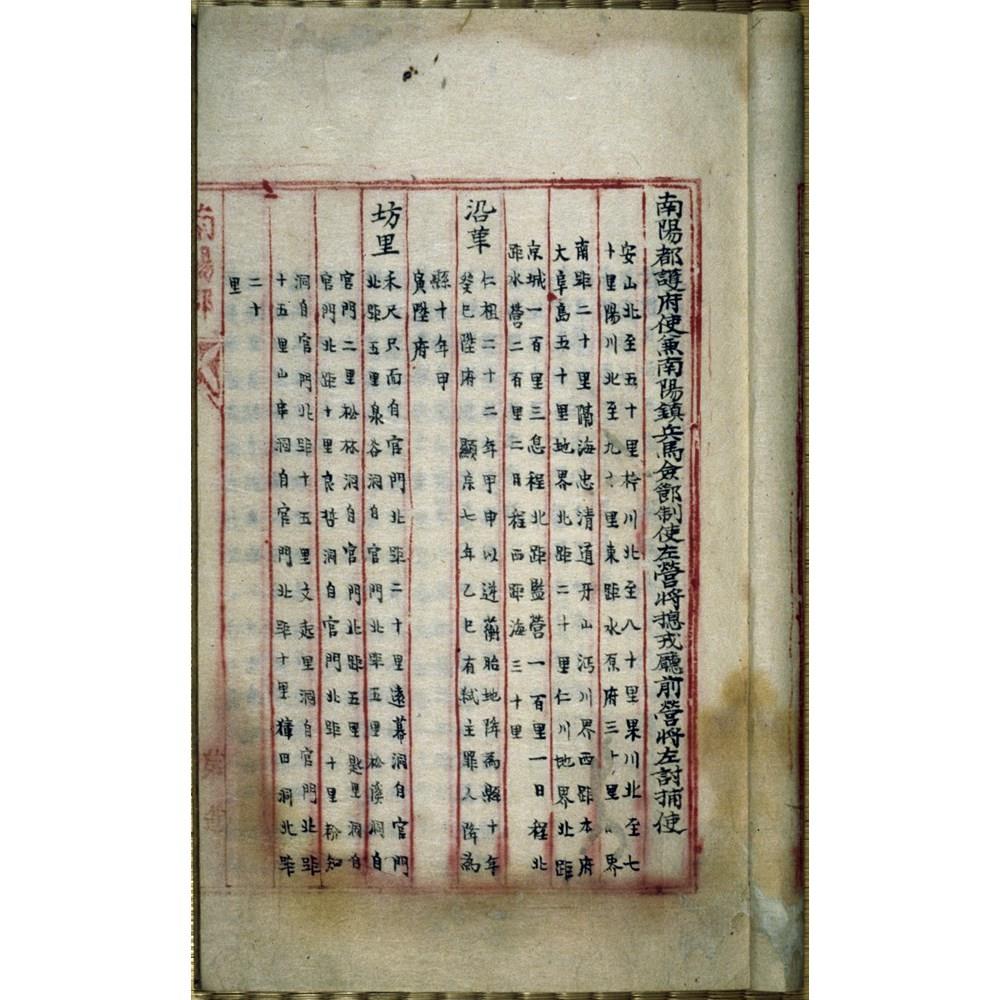 南陽都護府使兼南陽鎮兵馬僉節制使左營將摠戎廳前營將左討捕使
安山北至五十里衿川北至八十里果川北至七
十里陽川北至九十里東距水原府三十里界
南距二十里隔海忠清道牙山沔川界西距本府
大阜島五十里地界北距二十里仁川地界北距
京城一百里三息程北距監營一百里一日程北
距水營二百里二日程西距海三十里
沿革
仁祖二十二年甲申以逆蘅胎地降為縣十年
癸巳陞府顯宗七年乙巳有弑主罪人降為
縣十年甲
寅陞府
坊里
禾尺只面自官門北距二十里遠幕洞自官門
北距五里泉谷洞自官門北距五里松溪洞自
官門二里松林洞自官門北距五里匙里洞自
官門北距十里良哲洞自官門北距十里知
洞自官門北距十五里支起里洞自官門北距
十五里山串洞自官門北距十里獐田洞北距
二十
里
南陽